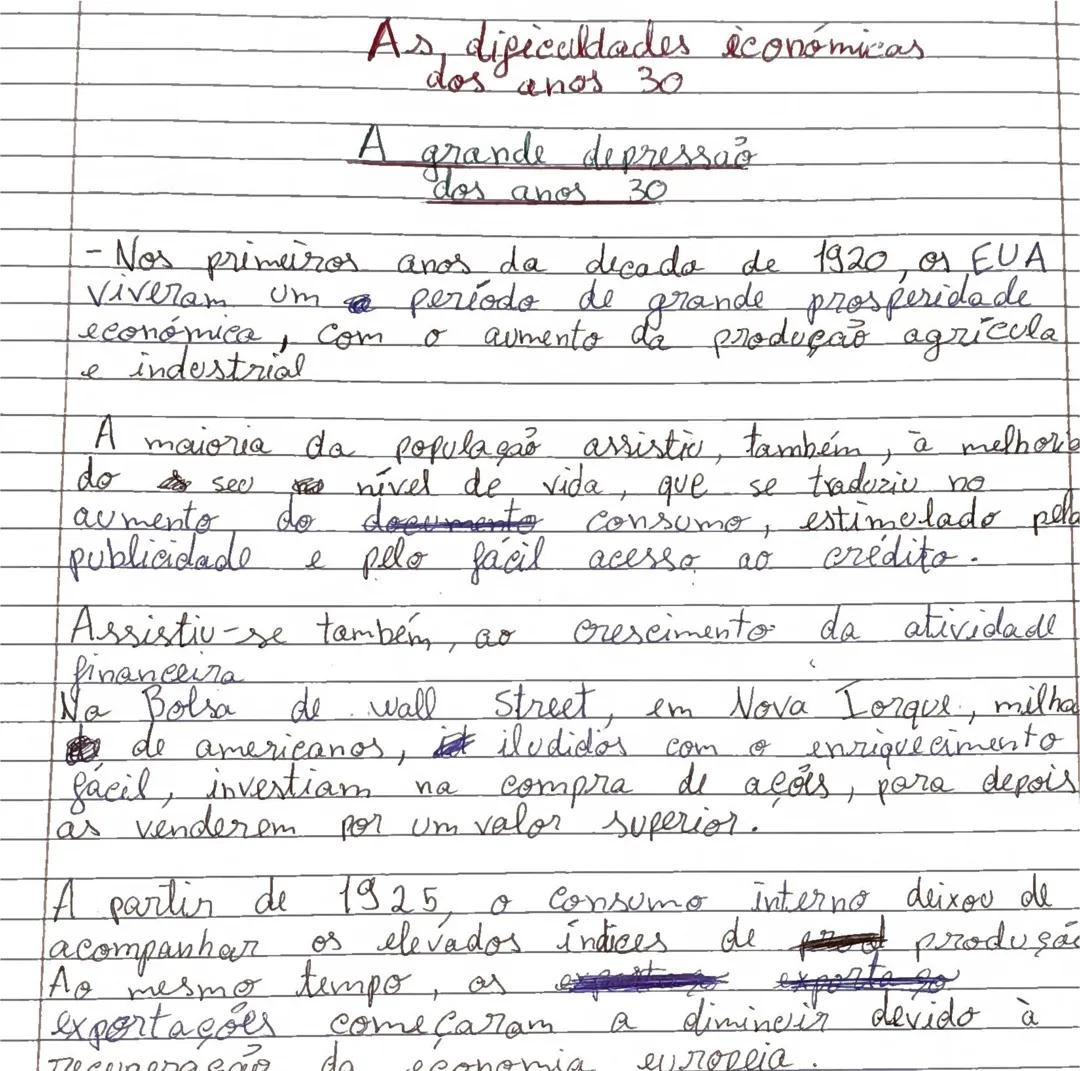 As dificuldades económicas
dos anos 30
A grande depressão
dos anos 30
- Nos primeiros anos da decada de 1920, os EUA
viveram um período de grande prosperidade
económica, com o aumento da produção agrícula
e industrial
A maioria da população assistiu, também, à melhoria
do seu nível de vida, que se traduziu no
aumento do documento consumo, estimulado pela
publicidade e pelo fácil acesso ao crédito.
Assistiu-se também, ao crescimento da atividade
financeira
Na Bolsa de wall Street, em Nova Iorque, milha
de americanos, iludidos com o enriquecimento
fácil, investiam na compra de ações, para depois
as venderem por um valor superior.
A partir de 1925, o consumo interno deixou de
acompanhar os elevados índices de produção
Ao mesmo tempo, as exportações começaram a diminuir devido à
recuperação da economia europeia.